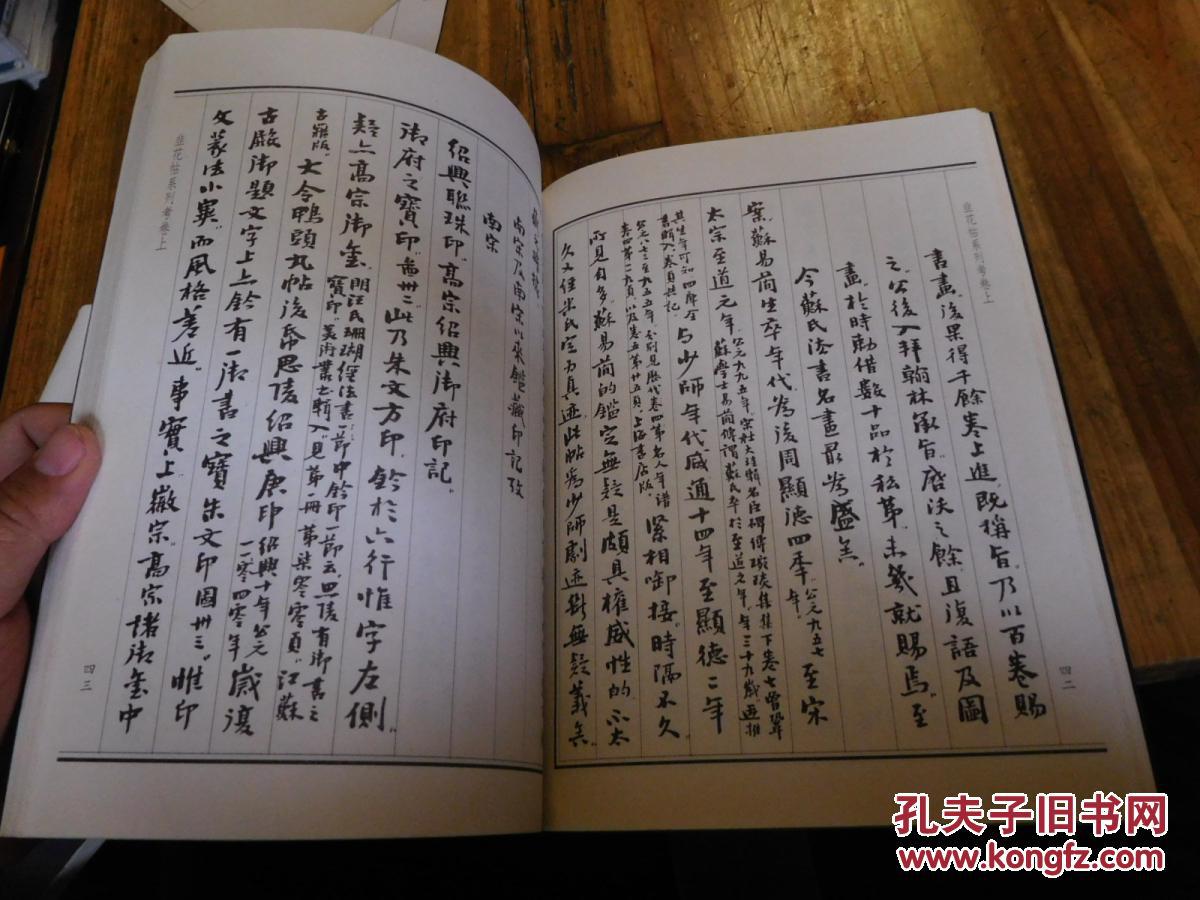 韭花帖系列考卷上
四二
書畫。後果得千餘卷上進。既稱旨。乃以百卷賜
之。公後入拜翰林承旨。廢法之餘。且復語及圖
畫。於時勅借數十品於私第。未幾就賜焉。至
今蘇氏法書名畫最為盛矣。
案。蘇易簡生卒年代為後周顯德四季。公元九五七年。至宋
太宗至道元年。公元九九五年。宋杜大珪輯名臣碑傳琬琰集集下卷七曾鞏
蘇學士易簡傳謂蘇氏卒於至道元年。年三十九歲。逆推
其生年可知。四庫全
書輯入。卷頁無記。與少師年代咸通十四年至顯德二年
公元八七三至九五五年。分別見歷代
卷四第二九頁。以及卷五第廿五頁。上海書店版。緊相啣接。時隔不久。
所見自多。蘇易簡的鑑定無疑是頗具權威性的。
久又經米氏定為真迹。此帖為少師劇迹斷無疑義矣。
南宗及南宗以來鑑藏印記攷
南宗
紹興聯珠印。高宗紹興御府印記。
御府之寶印。圖卅二。此乃朱文方印。鈐於六行惟字左側。
疑亦高宗御璽。明汪氏珊瑚網法書一節中鈐印一節云。思陵有御書之
寶印。美術叢書輯入。見第一冊第柒零零頁。江蘇
古籍版。大令鴨頭丸帖後希思陵紹興庚印紹興十年公元
一一零四零年歲復
古殿御題文字上上鈐有一御書之寶朱文印圖卅三。惟印
文篆法小異。而風格甚近。事實上。徽宗。高宗諸御璽中
韭花帖系列考卷上
四三
孔夫子旧书网
www.kongfz.com